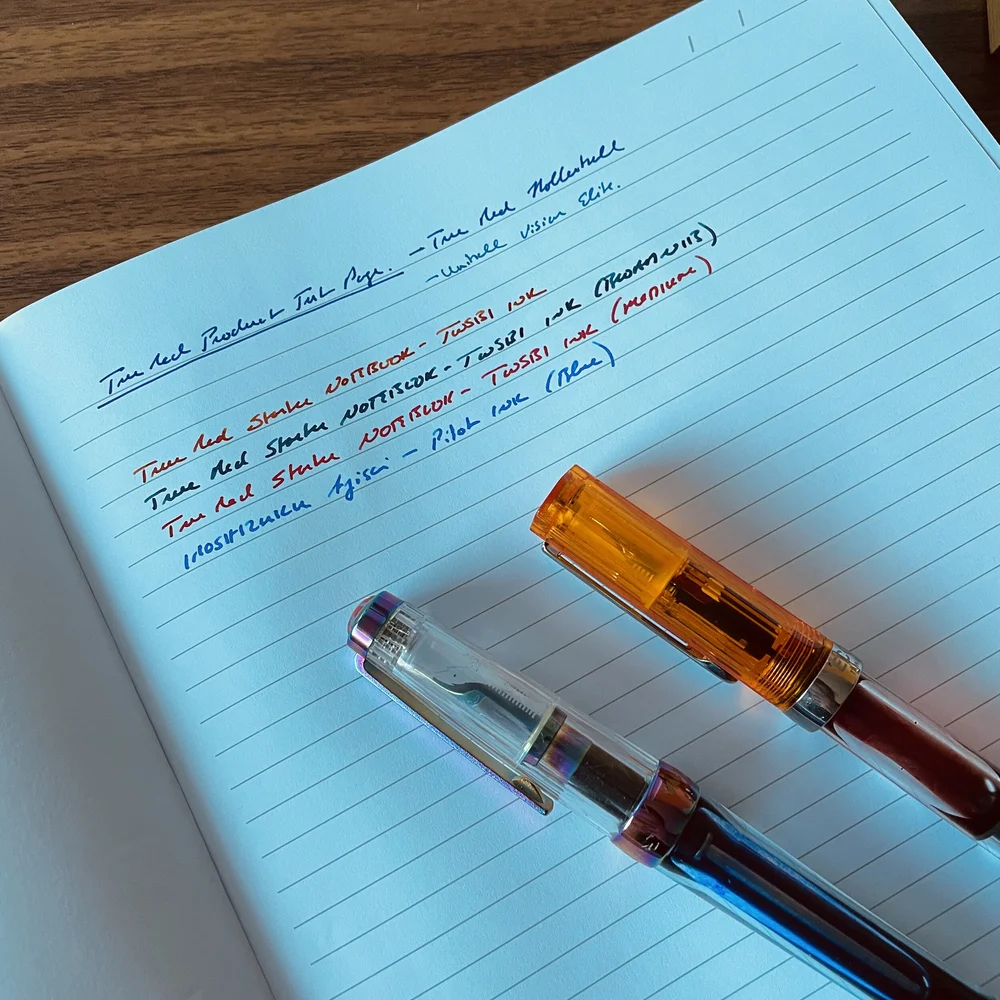 True Red Product Test Page. - True Red Rollerball
- Uniball Vision Elite.
True Red Starke NOTEBOOK - TWSBI INK
True Red Starke NOTEBOOK - TWSBI INK
True Red Starke NOTEBOOK - TWSBI INK (MEDIUM)
IROSHIZUKU Ajisai - Pilot INK (Blue)